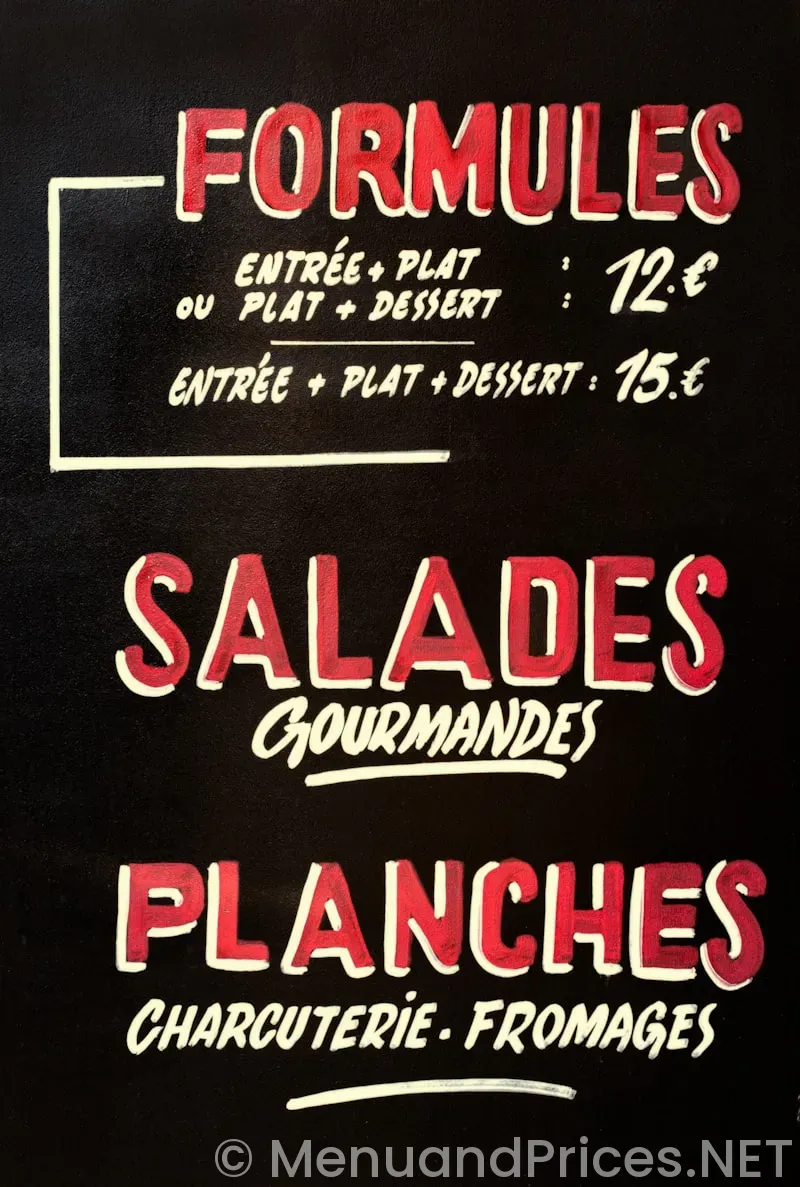 FORMULES
ENTRÉE + PLAT : 12.€
OU PLAT + DESSERT :
ENTRÉE + PLAT + DESSERT : 15.€
SALADES
GOURMANDES
PLANCHES
CHARCUTERIE . FROMAGES
© MenuandPrices.NET